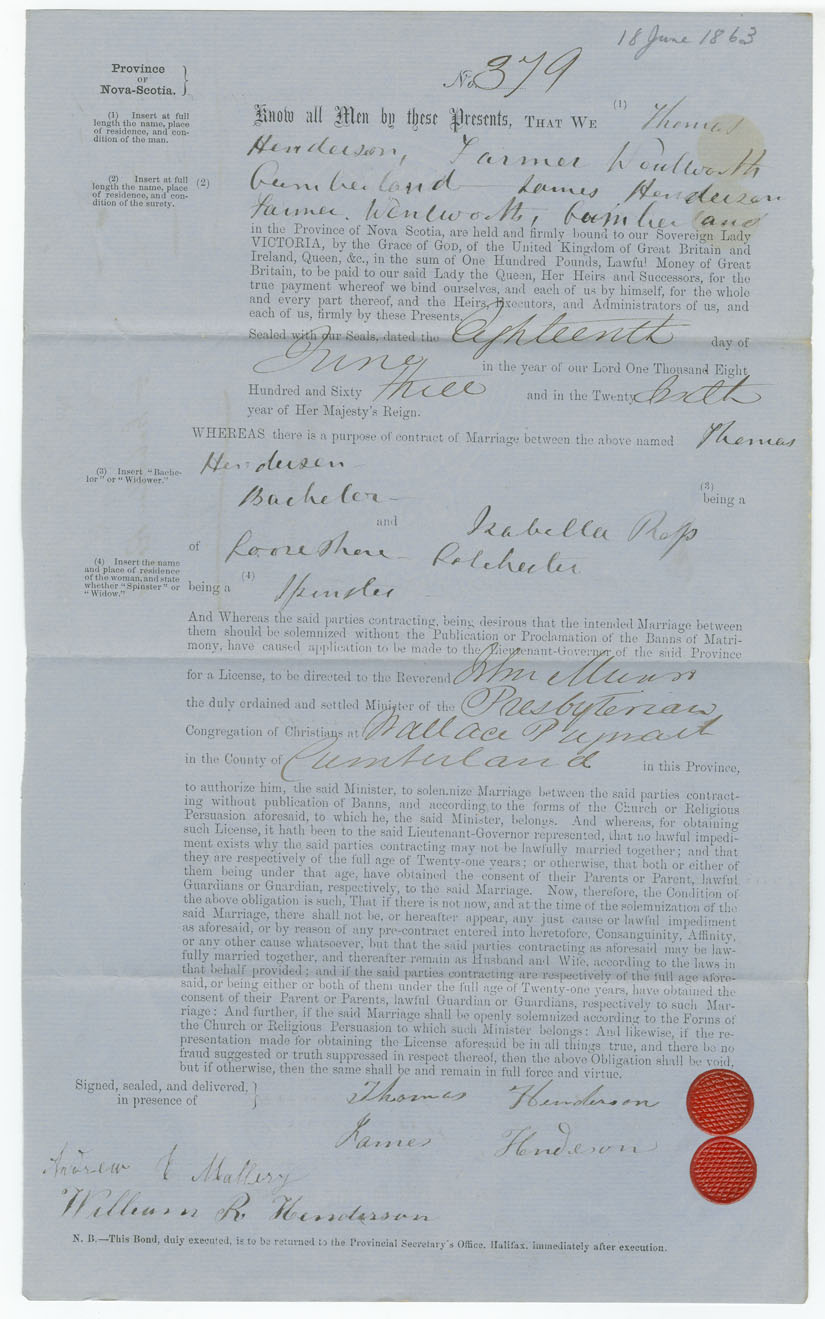 18 June 1863
Province
OF
Nova-Scotia.
No 379
(1) Insert at full
length the name, place
of residence, and con-
dition of the man.
(2) Insert at full
length the name, place
of residence, and con-
dition of the surety.
Know all Men by these Presents, THAT WE (1) Thomas
Henderson, Farmer Wentworth
(2) Cumberland James Henderson
Farmer. Wentworth, Cumberland
in the Province of Nova Scotia, are held and firmly bound to our Sovereign Lady
VICTORIA, by the Grace of GOD, of the United Kingdom of Great Britain and
Ireland, Queen, &c., in the sum of One Hundred Pounds, Lawful Money of Great
Britain, to be paid to our said Lady the Queen, Her Heirs and Successors, for the
true payment whereof we bind ourselves, and each of us by himself, for the whole
and every part thereof, and the Heirs, Executors, and Administrators of us, and
each of us, firmly by these Presents.
Sealed with our Seals, dated the Eighteenth day of
June in the year of our Lord One Thousand Eight
Hundred and Sixty three and in the Twenty Sixth
year of Her Majesty's Reign.
WHEREAS there is a purpose of contract of Marriage between the above named Thomas
Henderson
(3) Insert "Bache-
lor" or "Widower."
Bachelor (3) being a
and Isabella Ross
of Colchester
(4) Insert the name
and place of residence
of the woman, and state
whether "Spinster" or
"Widow."
being a (4) Spinster
And Whereas the said parties contracting, being desirous that the intended Marriage between
them should be solemnized without the Publication or Proclamation of the Banns of Matri-
mony, have caused application to be made to the Lieutenant-Governor of the said Province
for a License, to be directed to the Reverend John Munro
the duly ordained and settled Minister of the Presbyterian
Congregation of Christians at Wallace
in the County of Cumberland in this Province,
to authorize him, the said Minister, to solemnize Marriage between the said parties contract-
ing without publication of Banns, and according to the forms of the Church or Religious
Persuasion aforesaid, to which he, the said Minister, belongs. And whereas, for obtaining
such License, it hath been to the said Lieutenant-Governor represented, that no lawful impedi-
ment exists why the said parties contracting may not be lawfully married together; and that
they are respectively of the full age of Twenty-one years; or otherwise, that both or either of
them being under that age, have obtained the consent of their Parents or Parent, lawful
Guardians or Guardian, respectively, to the said Marriage. Now, therefore, the Condition of
the above obligation is such, That if there is not now, and at the time of the solemnization of the
said Marriage, there shall not be, or hereafter appear, any just cause or lawful impediment
as aforesaid, or by reason of any pre-contract entered into heretofore, Consanguinity, Affinity,
or any other cause whatsoever, but that the said parties contracting as aforesaid may be law-
fully married together, and thereafter remain as Husband and Wife, according to the laws in
that behalf provided; and if the said parties contracting are respectively of the full age afore-
said, or being either or both of them under the full age of Twenty-one years, have obtained the
consent of their Parent or Parents, lawful Guardian or Guardians, respectively to such Mar-
riage: And further, if the said Marriage shall be openly solemnized according to the Forms of
the Church or Religious Persuasion to which such Minister belongs: And likewise, if the re-
presentation made for obtaining the License aforesaid be in all things true, and there be no
fraud suggested or truth suppressed in respect thereof, then the above Obligation shall be void,
but if otherwise, then the same shall be and remain in full force and virtue.
Signed, sealed, and delivered,
in presence of
Thomas Henderson
James Hendeson
Andrew Mallery
William R. Henderson
N. B.—This Bond, duly executed, is to be returned to the Provincial Secretary's Office, Halifax, immediately after execution.